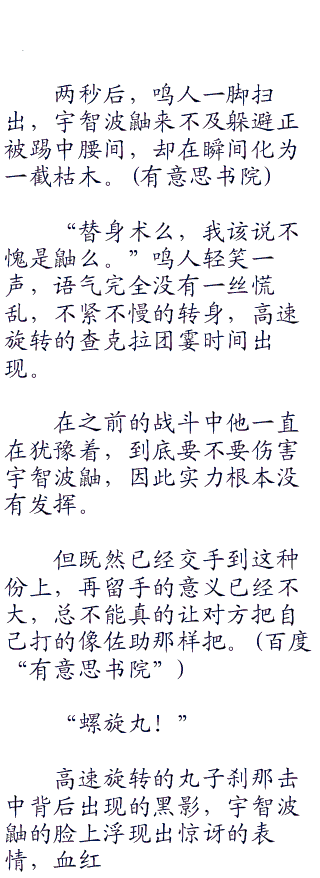 两秒后，鸣人一脚扫
出，宇智波鼬来不及躲避正
被踢中腰间，却在瞬间化为
一截枯木。(有意思书院)
“替身术么，我该说不
愧是鼬么。”鸣人轻笑一
声，语气完全没有一丝慌
乱，不紧不慢的转身，高速
旋转的查克拉团霎时间出
现。
在之前的战斗中他一直
在犹豫着，到底要不要伤害
宇智波鼬，因此实力根本没
有发挥。
但既然已经交手到这种
份上，再留手的意义已经不
大，总不能真的让对方把自
己打的像佐助那样把。(百度
“有意思书院”)
“螺旋丸！”
高速旋转的丸子刹那击
中背后出现的黑影，宇智波
鼬的脸上浮现出惊讶的表
情，血红